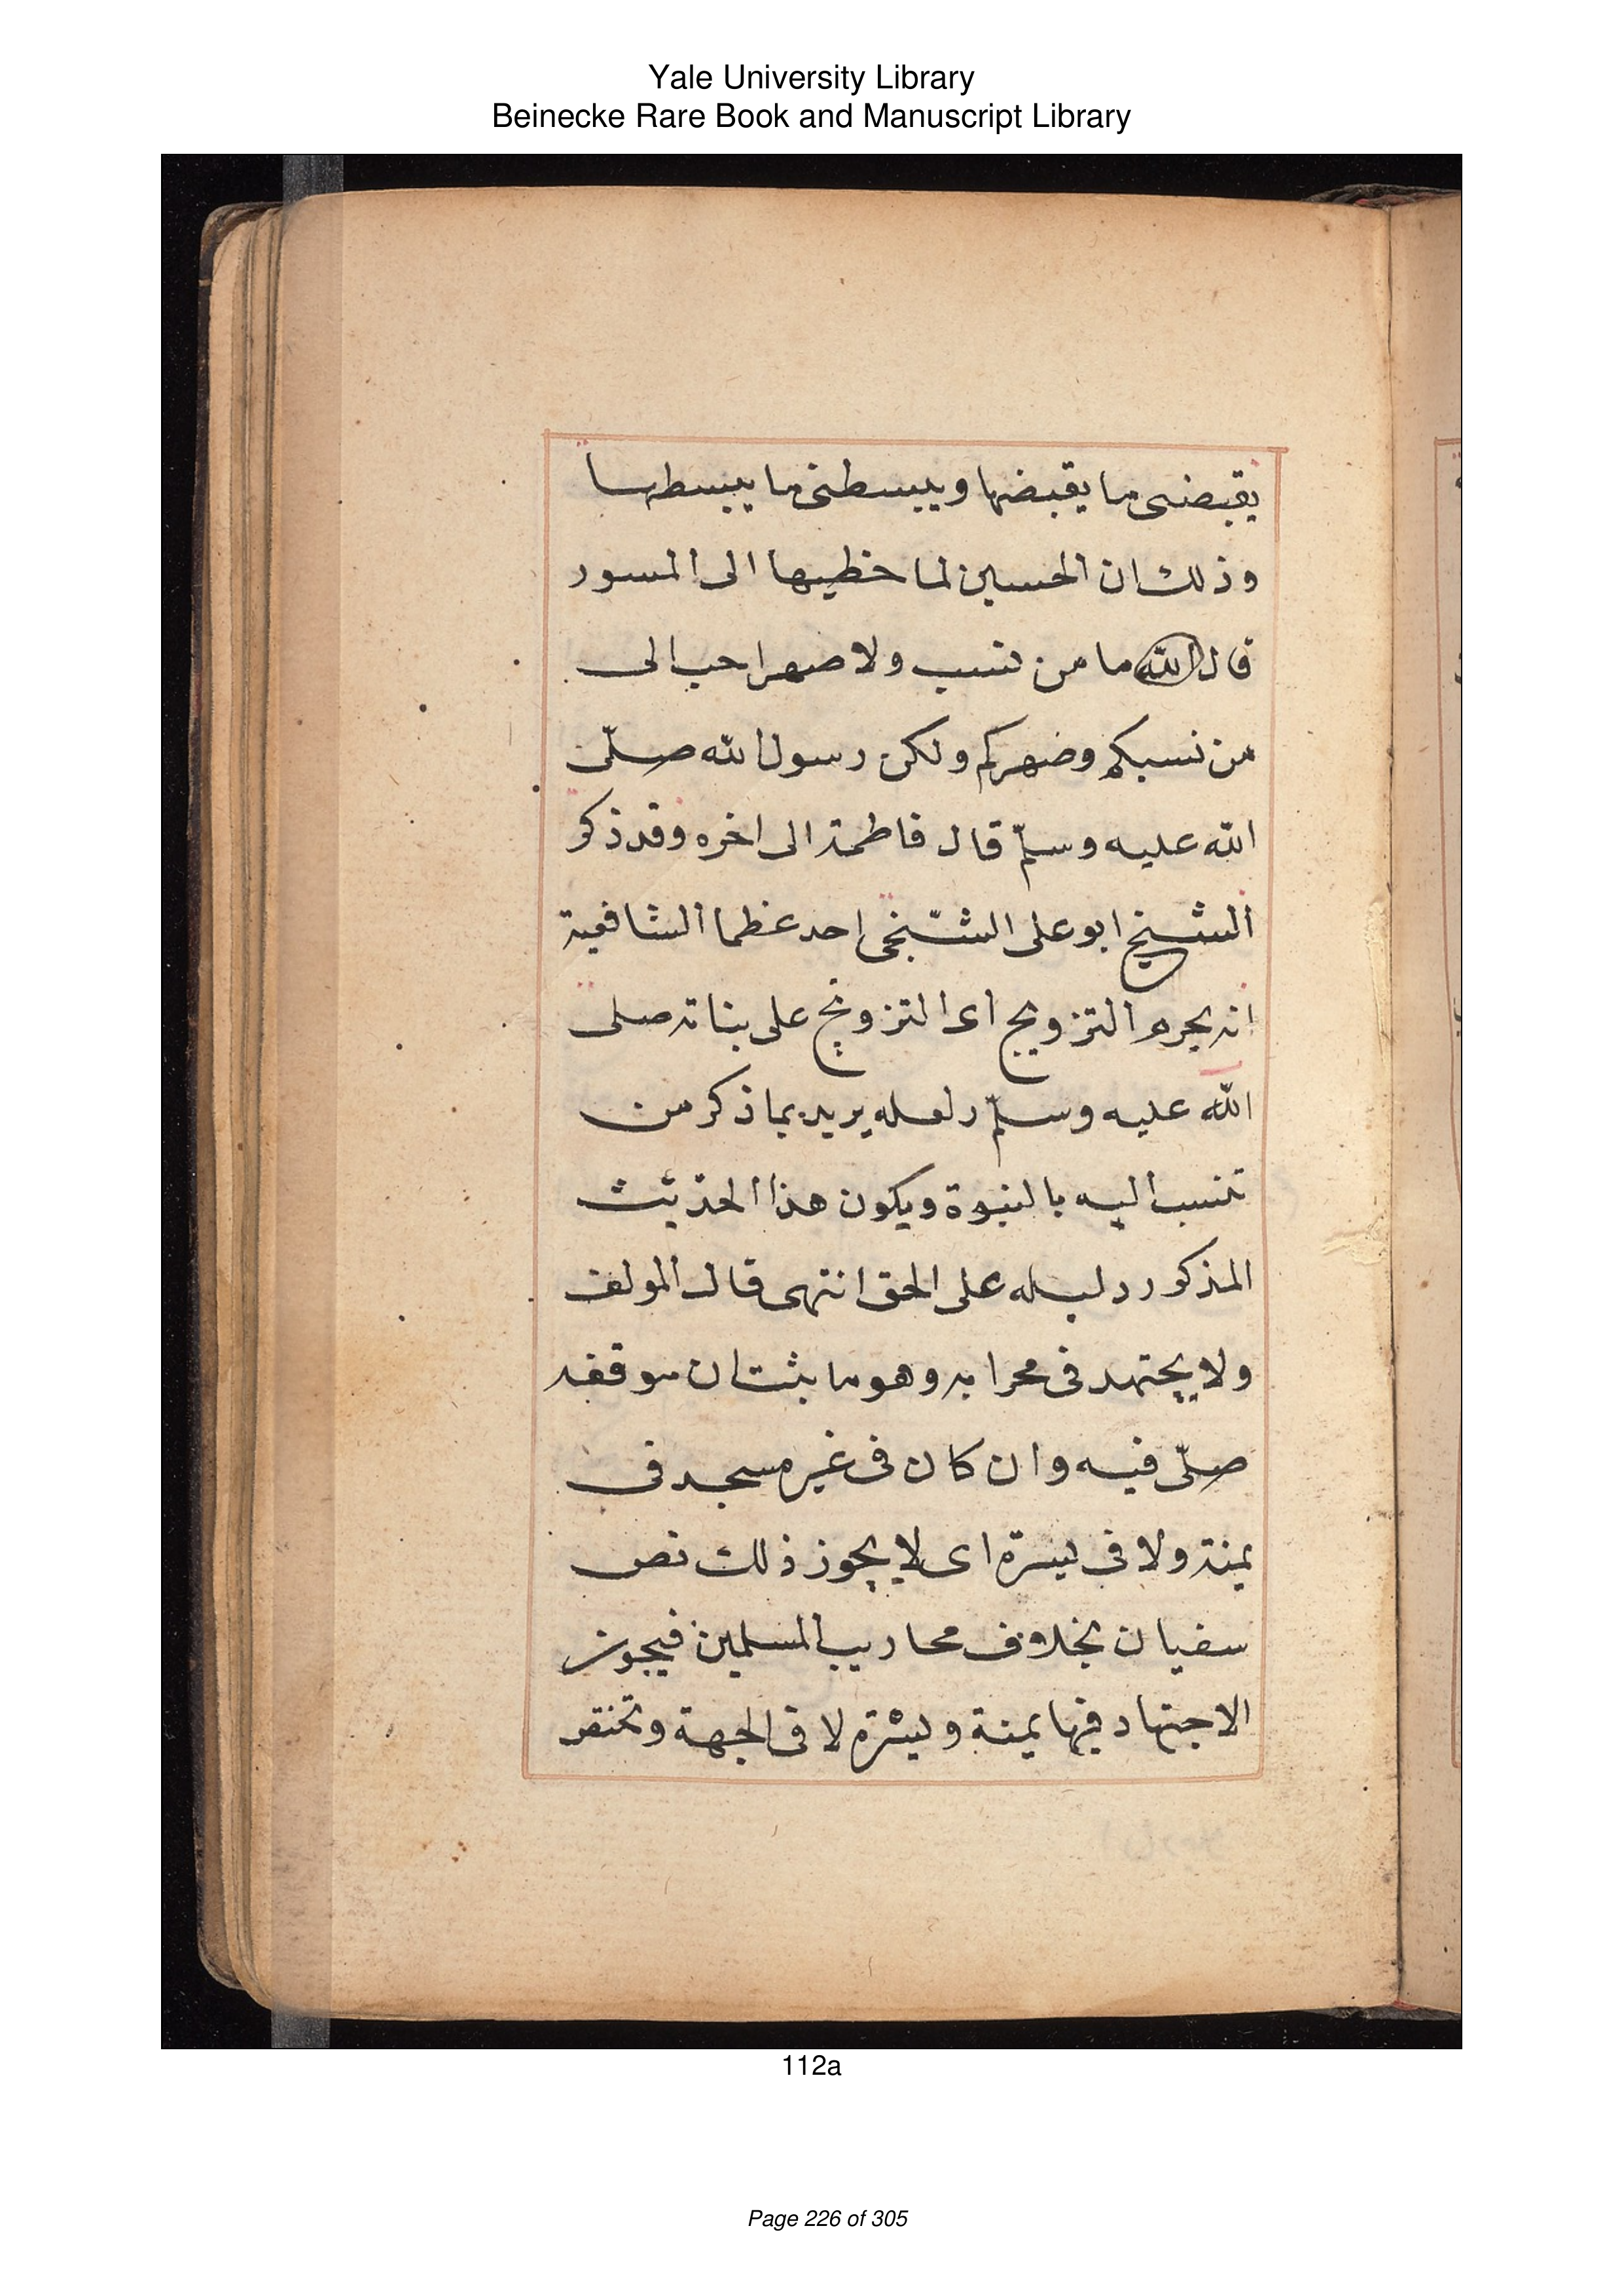 Yale University Library
Beinecke Rare Book and Manuscript Library
يقبضنى ما يقبضها ويبسطنى ما يبسطها
وذلك ان الحسين لما خطبها الى المسور
قال الله ما من نسب ولا صهر احب الى
من نسبكم وضهركم ولكن رسول الله صلّى
الله عليه وسلّم قال فاطمة الى اخره وقد ذكر
الشيخ ابو على الشّنجى احد عظما الشافعية
انه يحرم التزويج اى التزويج على بناته صلى
الله عليه وسلّم ولعله يريد بما ذكر من
تنسب اليه بالنبوة ويكون هذا الحديث
المذكور دليله على الحق انتهى قال المولف
ولا يجتهد فى محرابه وهو ما بثت ان موقفه
صلّى فيه وان كان فى غير مسجد فى
يمنة ولا فى يسرة اى لا يجوز ذلك نص
سفيان بخلاف محاريب المسلمين فيجوز
الاجتهاد فيها يمنة ويسرة لا فى الجهة
112a
Page 226 of 305